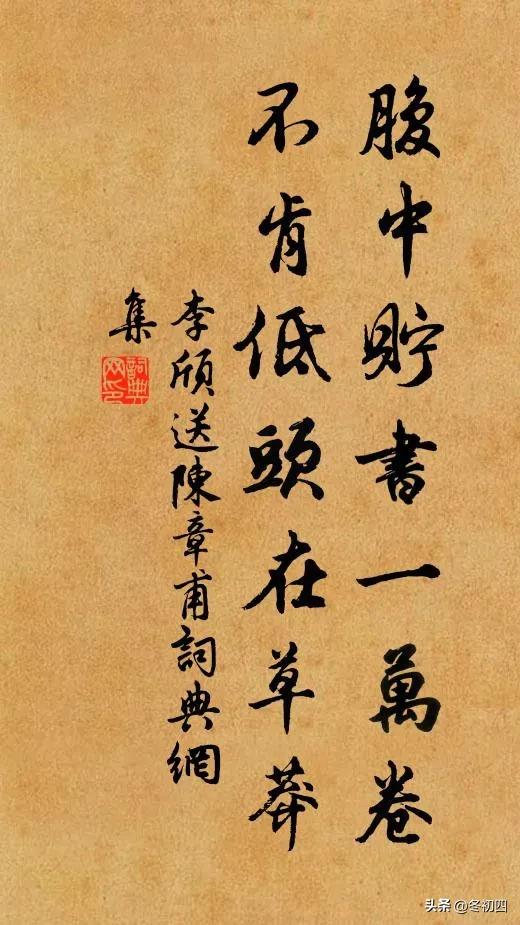 腹中貯書一萬卷
不肯低頭在草莽
李頎送陳章甫詞典網
集
詞典網印
头条 @冬初四